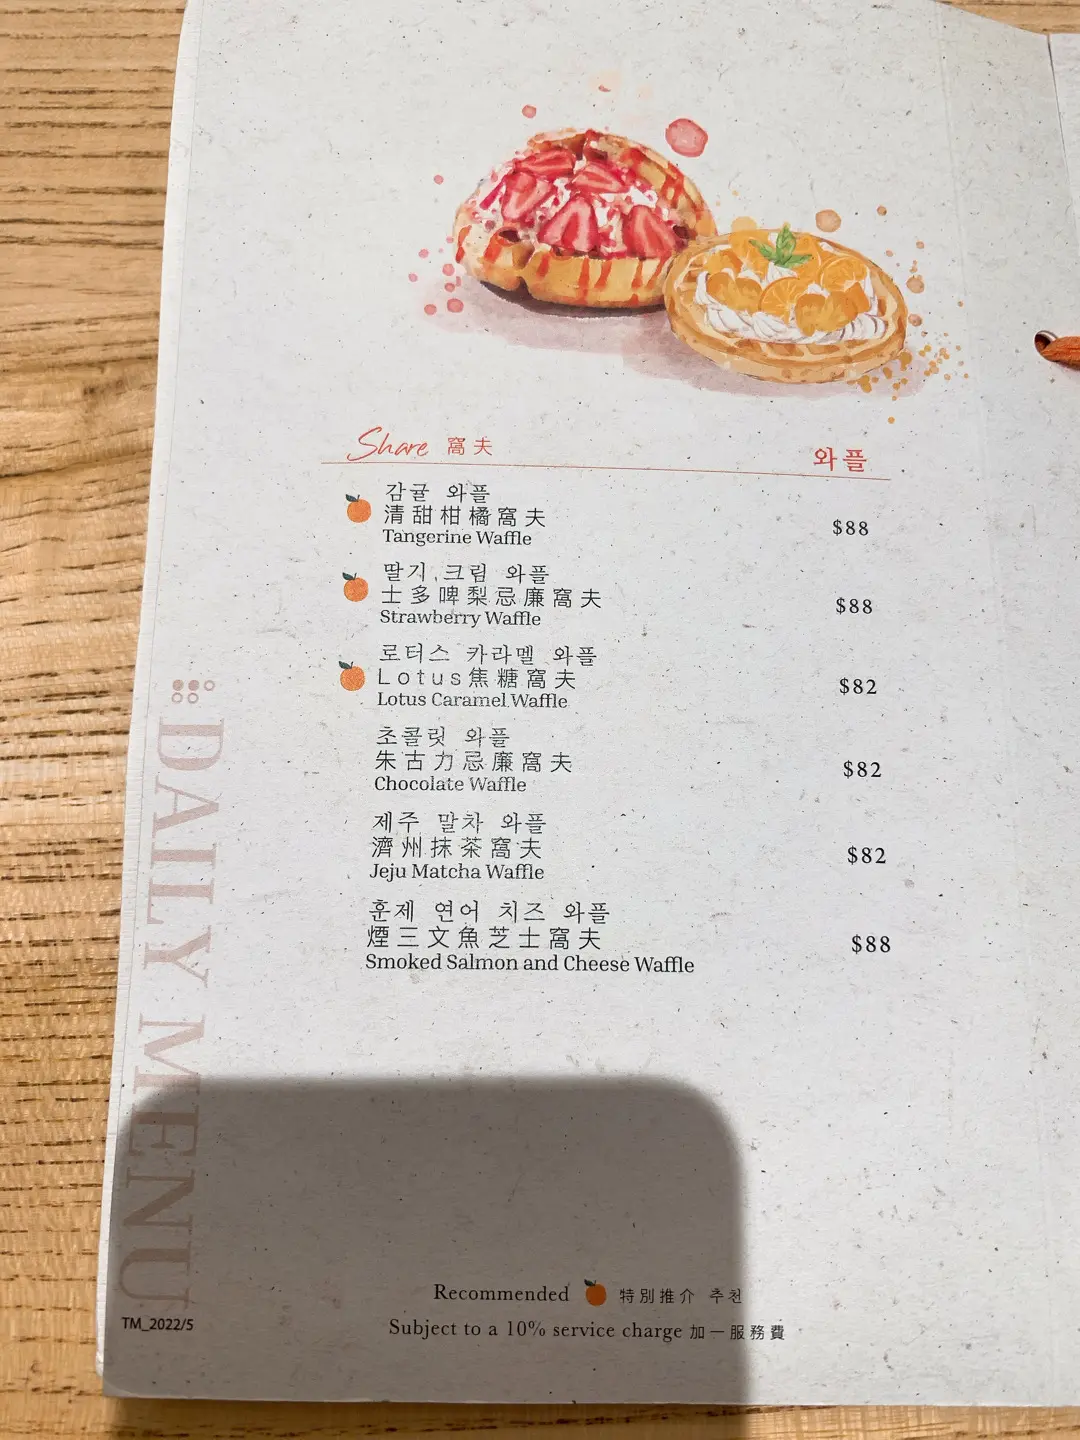 Share 窩夫 와플
감귤 와플
清甜柑橘窩夫
Tangerine Waffle
$88
딸기 크림 와플
士多啤梨忌廉窩夫
Strawberry Waffle
$88
로터스 카라멜 와플
Lotus焦糖窩夫
Lotus Caramel Waffle
$82
초콜릿 와플
朱古力忌廉窩夫
Chocolate Waffle
$82
제주 말차 와플
濟州抹茶窩夫
Jeju Matcha Waffle
$82
훈제 연어 치즈 와플
煙三文魚芝士窩夫
Smoked Salmon and Cheese Waffle
$88
DAILY MENU
Recommended 特別推介 추천
Subject to a 10% service charge 加一服務費
TM_2022/5